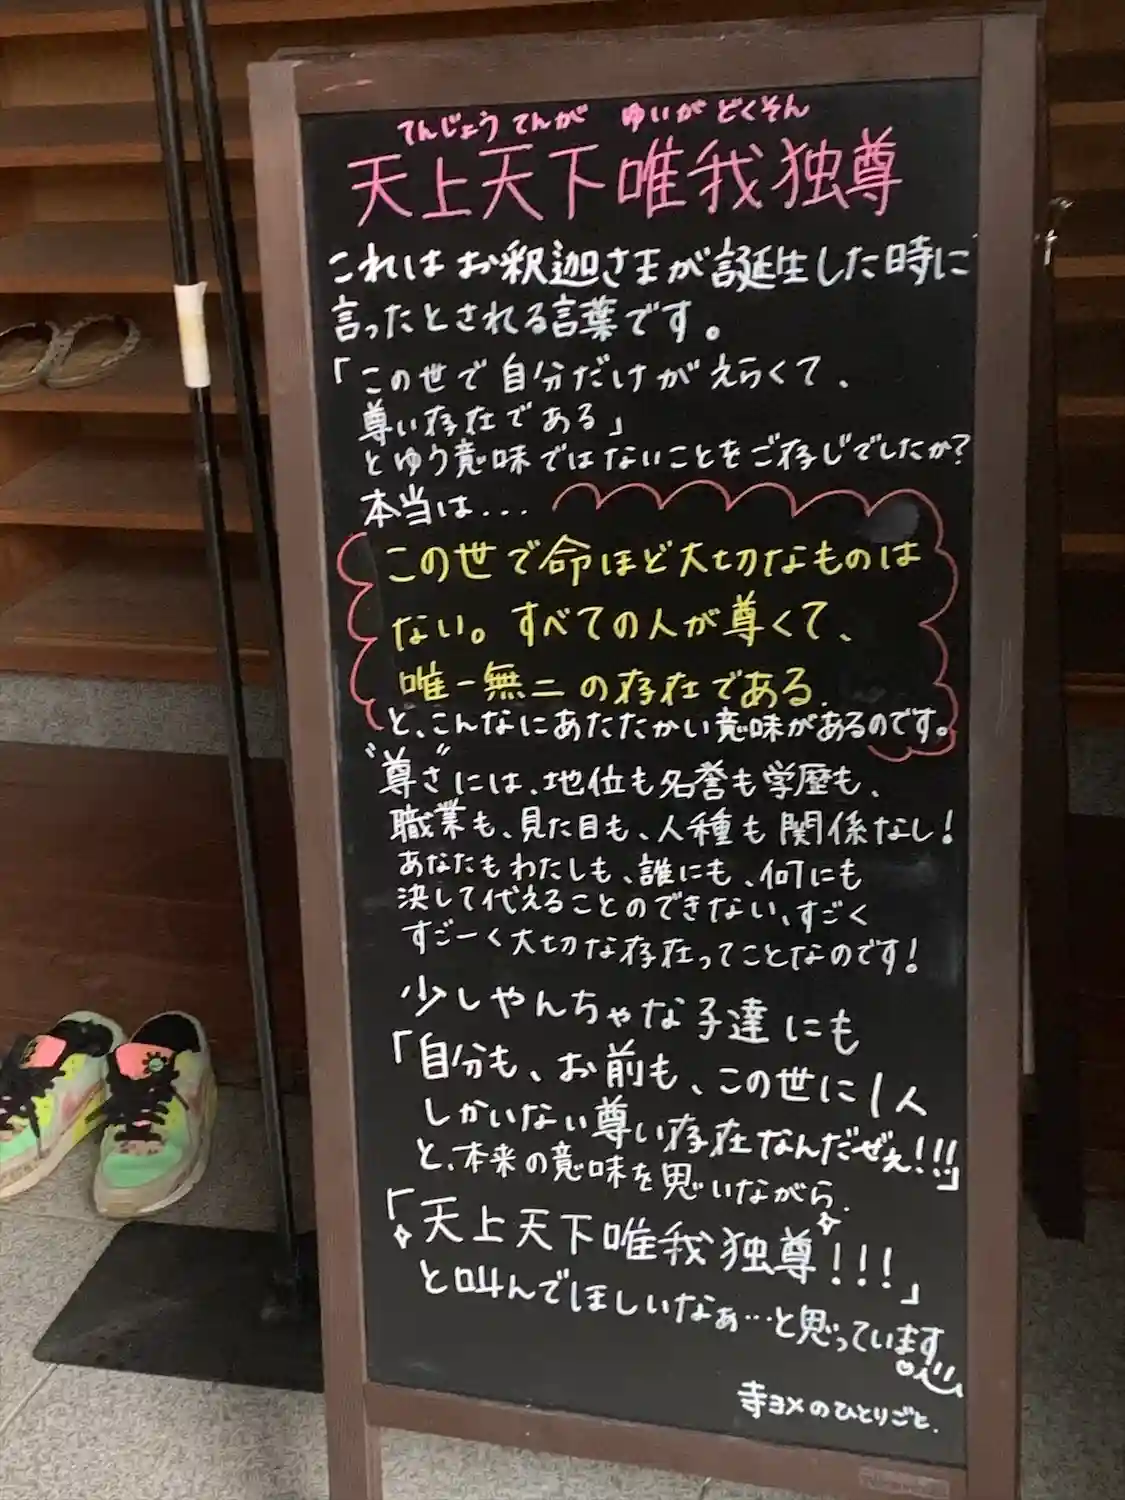 てんじょう てんが ゆいが どくそん
天上天下唯我独尊
これは お釈迦さまが誕生した時に
言ったとされる言葉です。
「この世で自分だけがえらくて、
尊い存在である」
とゆう意味ではないことをご存じでしたか?
本当は...
この世で命ほど大切なものは
ない。すべての人が尊くて、
唯一無二の存在である.
と、こんなにあたたかい意味があるのです。
"尊さ"には、地位も名誉も学歴も、
職業も、見た目も、人種も関係なし!
あなたもわたしも、誰にも、何にも
決して代えることのできない、すごく
すごーく大切な存在ってことなのです!
少しやんちゃな子達にも
「自分も、お前も、この世に1人
しかいない尊い存在なんだぜぇ!!!」
と、本来の意味を思いながら.
「天上天下唯我独尊!!!」
と叫んでほしいなぁ…と思っています
寺ヨメのひとりごと.